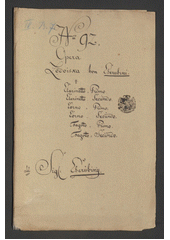 No 92.
Opera
Lodoiska von Cherubini
Clarinetto Primo
Clarinetto Secondo
Corno - Primo
Corno Secondo
Fagotto - Primo
Fagotto - Secondo
Cherubini